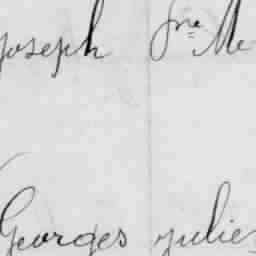 Joseph Jne Me
Georges Julie